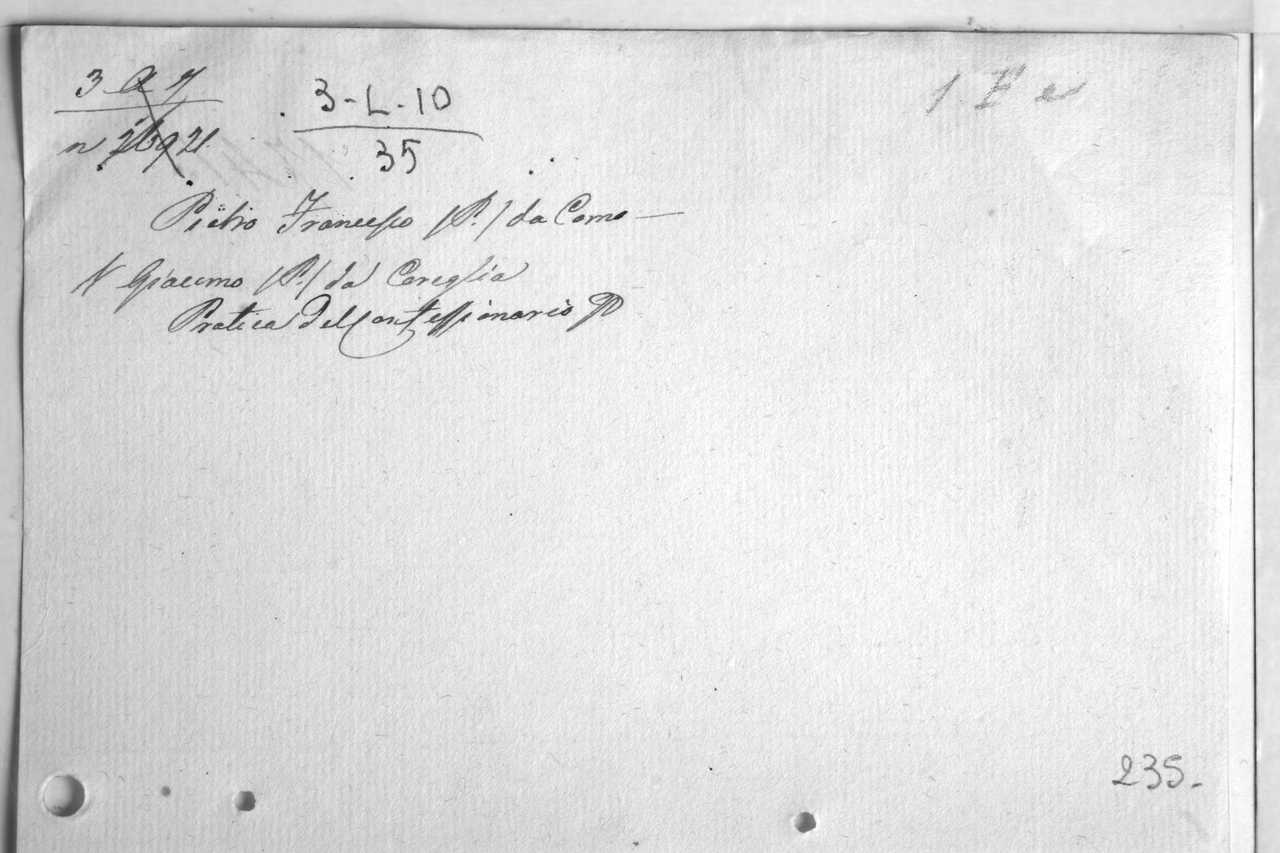 3 Q 7
n 21
3-L-10
35
Pietro Francesco (P.) da Como —
N Giacomo (P.) da Coreglia
Pratica del Confessionario
235.